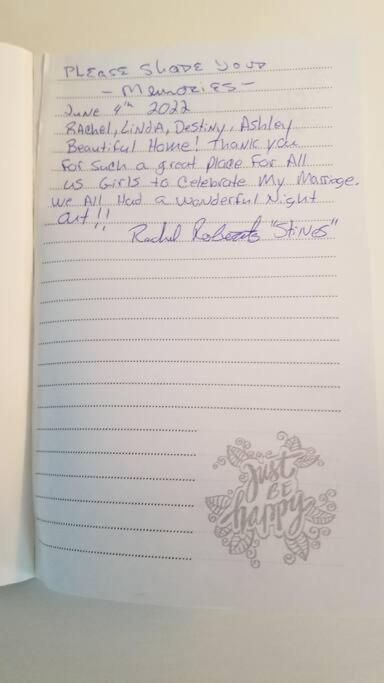 PLEASE SHARE YOUR
- MEMORIES -
June 4th 2022
RAchel, LiNdA, Destiny, Ashley
Beautiful Home! Thank you
For Such a great place For All
us Girls to Celebrate My Marriage.
We All Had a Wonderful Night
out!!
Rachel Roberts "Stines"
just
BE
happy